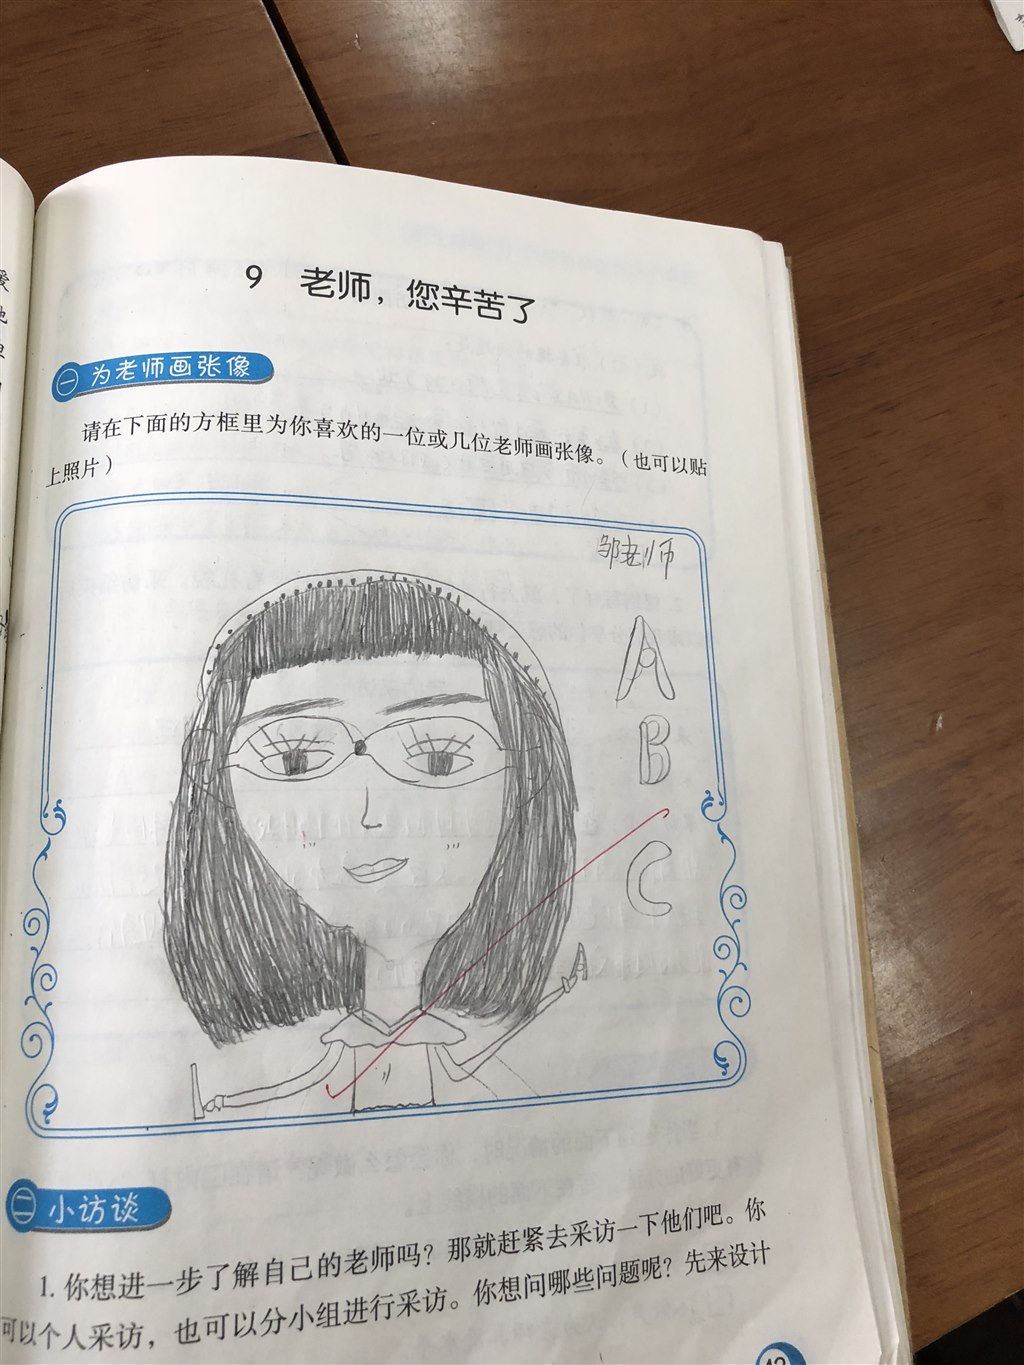 9 老师，您辛苦了
一 为老师画张像
请在下面的方框里为你喜欢的一位或几位老师画张像。（也可以贴
上照片）
邹老师
A
B
C
二 小访谈
1. 你想进一步了解自己的老师吗？那就赶紧去采访一下他们吧。你
可以个人采访，也可以分小组进行采访。你想问哪些问题呢？先来设计